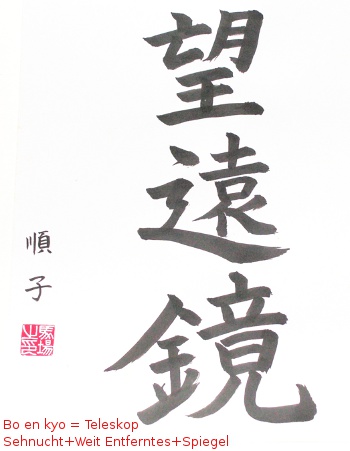 望遠鏡
順子
馬場之印
Bo en kyo = Teleskop
Sehnucht+Weit Entferntes+Spiegel